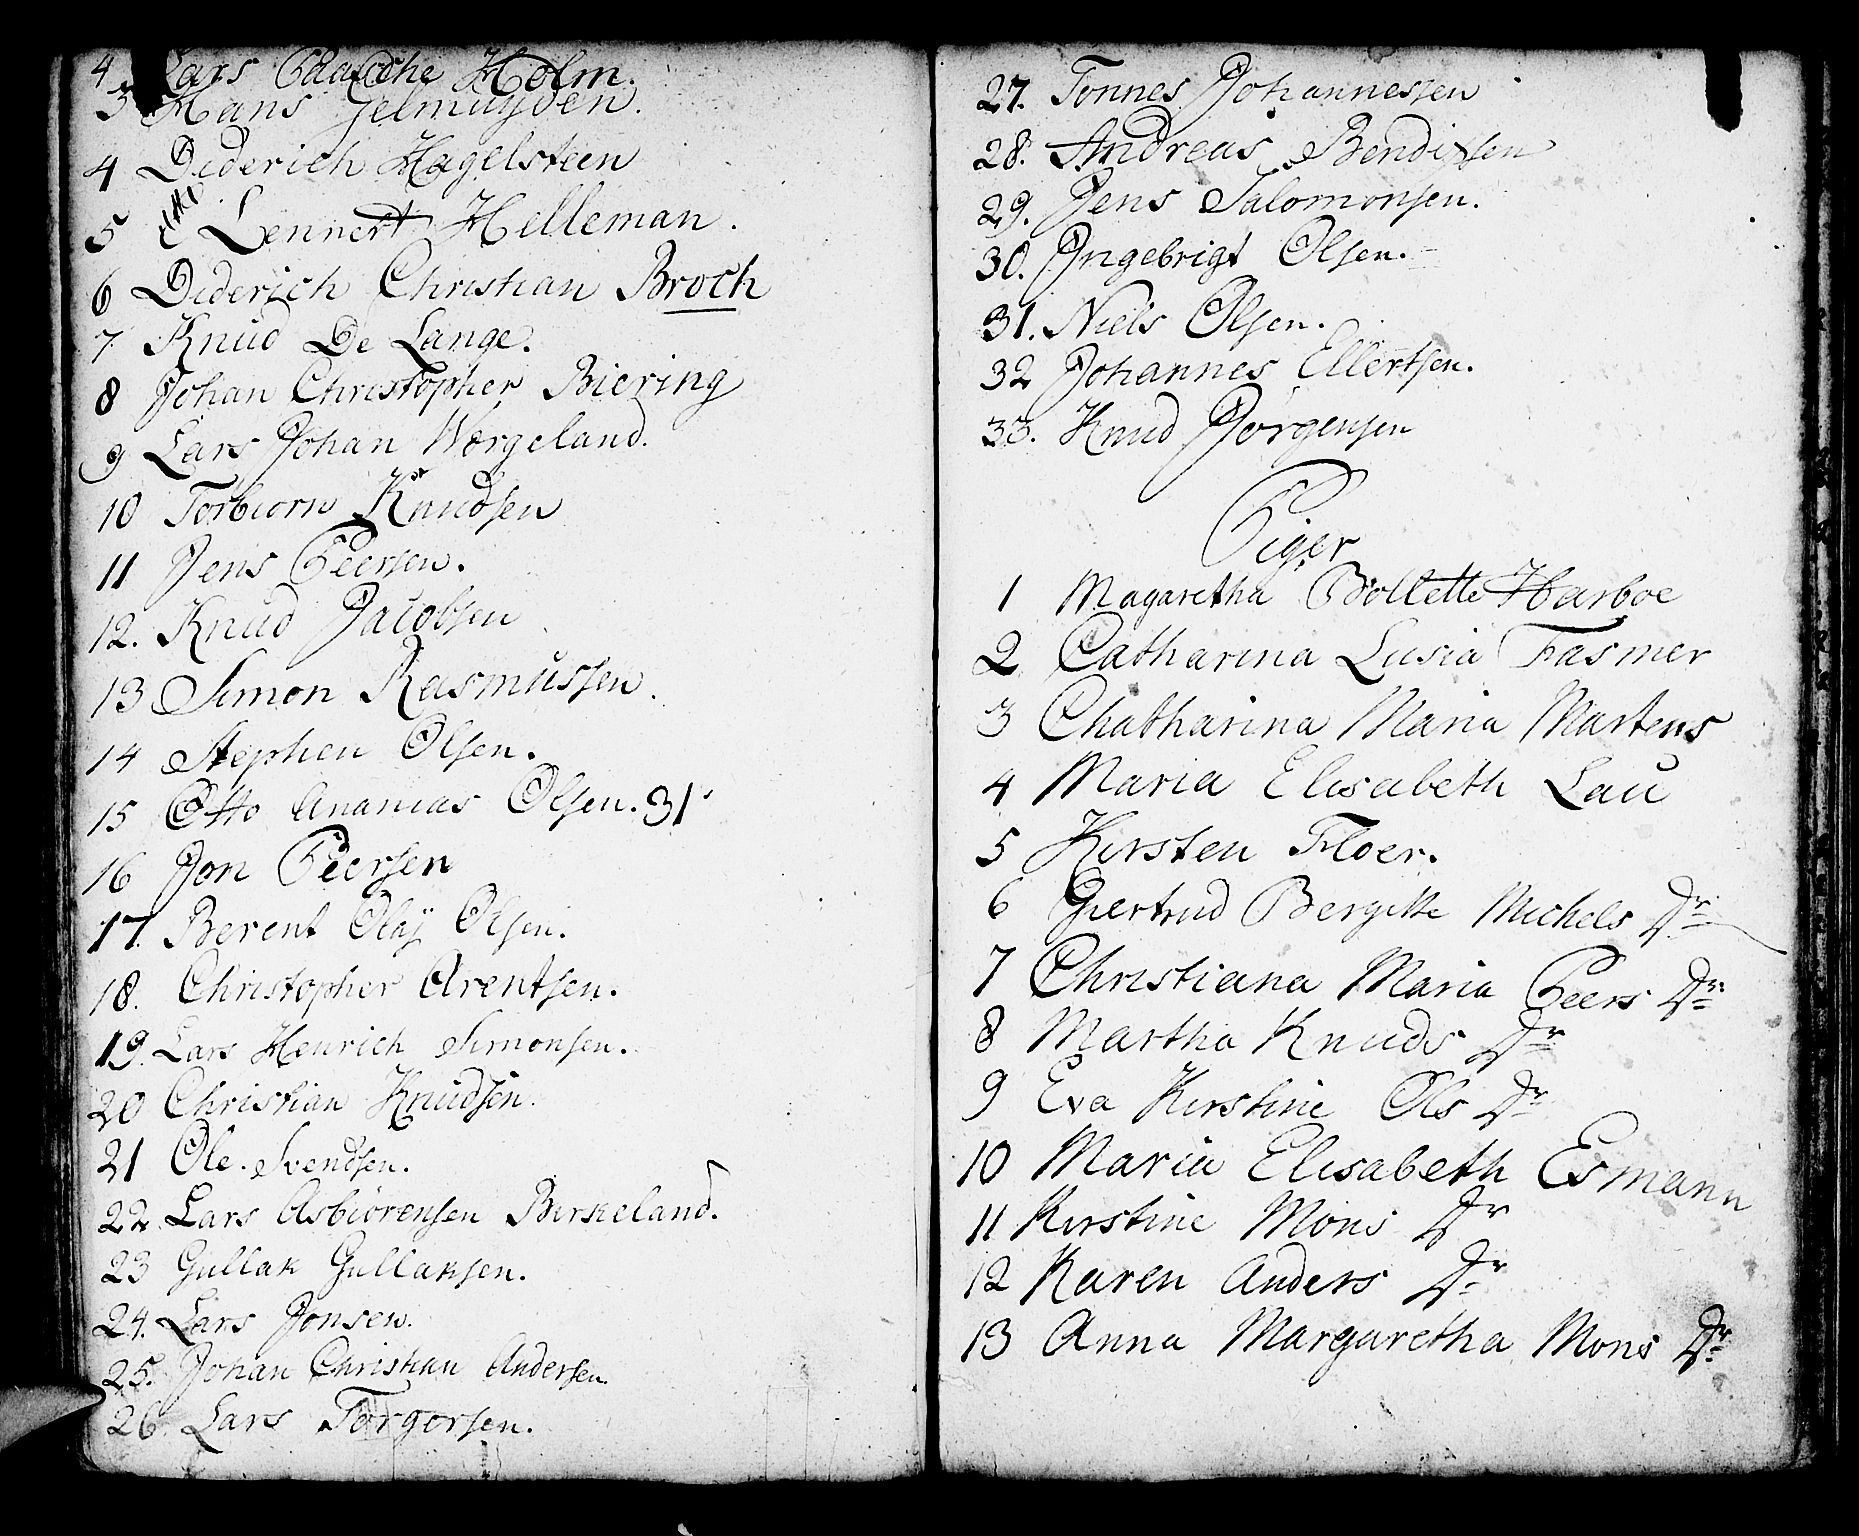 4 Lars Paasche Holm.
3 Hans Gelmuyden.
4 Diderich Hagelsteen
5 Lennert Helleman.
6 Diderich Christian Broch
7 Knud De Lange.
8 Johan Christopher Biering
9 Lars Johan Wergeland.
10 Torbiorn Knudsen
11 Jens Peersen.
12. Knud Jacobsen
13 Simon Rasmussen.
14 Stephen Olsen.
15 Otto Ananias Olsen. 31
16 Jon Peersen
17. Berent Olaÿ Olsen.
18. Christopher Arentsen.
19. Lars Henrich Simonsen.
20 Christian Knudsen.
21 Ole. Svendsen.
22. Lars Asbiörensen Birkeland.
23 Gullak Gullaksen.
24. Lars Jonsen.
25. Johan Christian Andersen
26 Lars Torgersen.
27. Tonnes Johannessen
28. Andreas Bendixsen
29. Jens Salomonsen.
30. Ingebrigt Olsen.
31. Niels Olsen.
32 Johannes Ellertsen.
33. Knud Jörgensen
Piger
1 Magaretha Bollette Harboe
2 Catharina Lusia Fasmer
3 Chatharina Maria Martens
4 Maria Elisabeth Lau
5 Kirsten Floer.
6 Giertrud Bergitte Michels Dr
7 Christiana Maria Peers Dr
8 Martha Knuds Dr
9 Eva Kirstine Ols Dr
10 Maria Elisabeth Esmann
11 Kirstine Mons Dr
12 Karen Anders Dr
13 Anna Margaretha Mons Dr